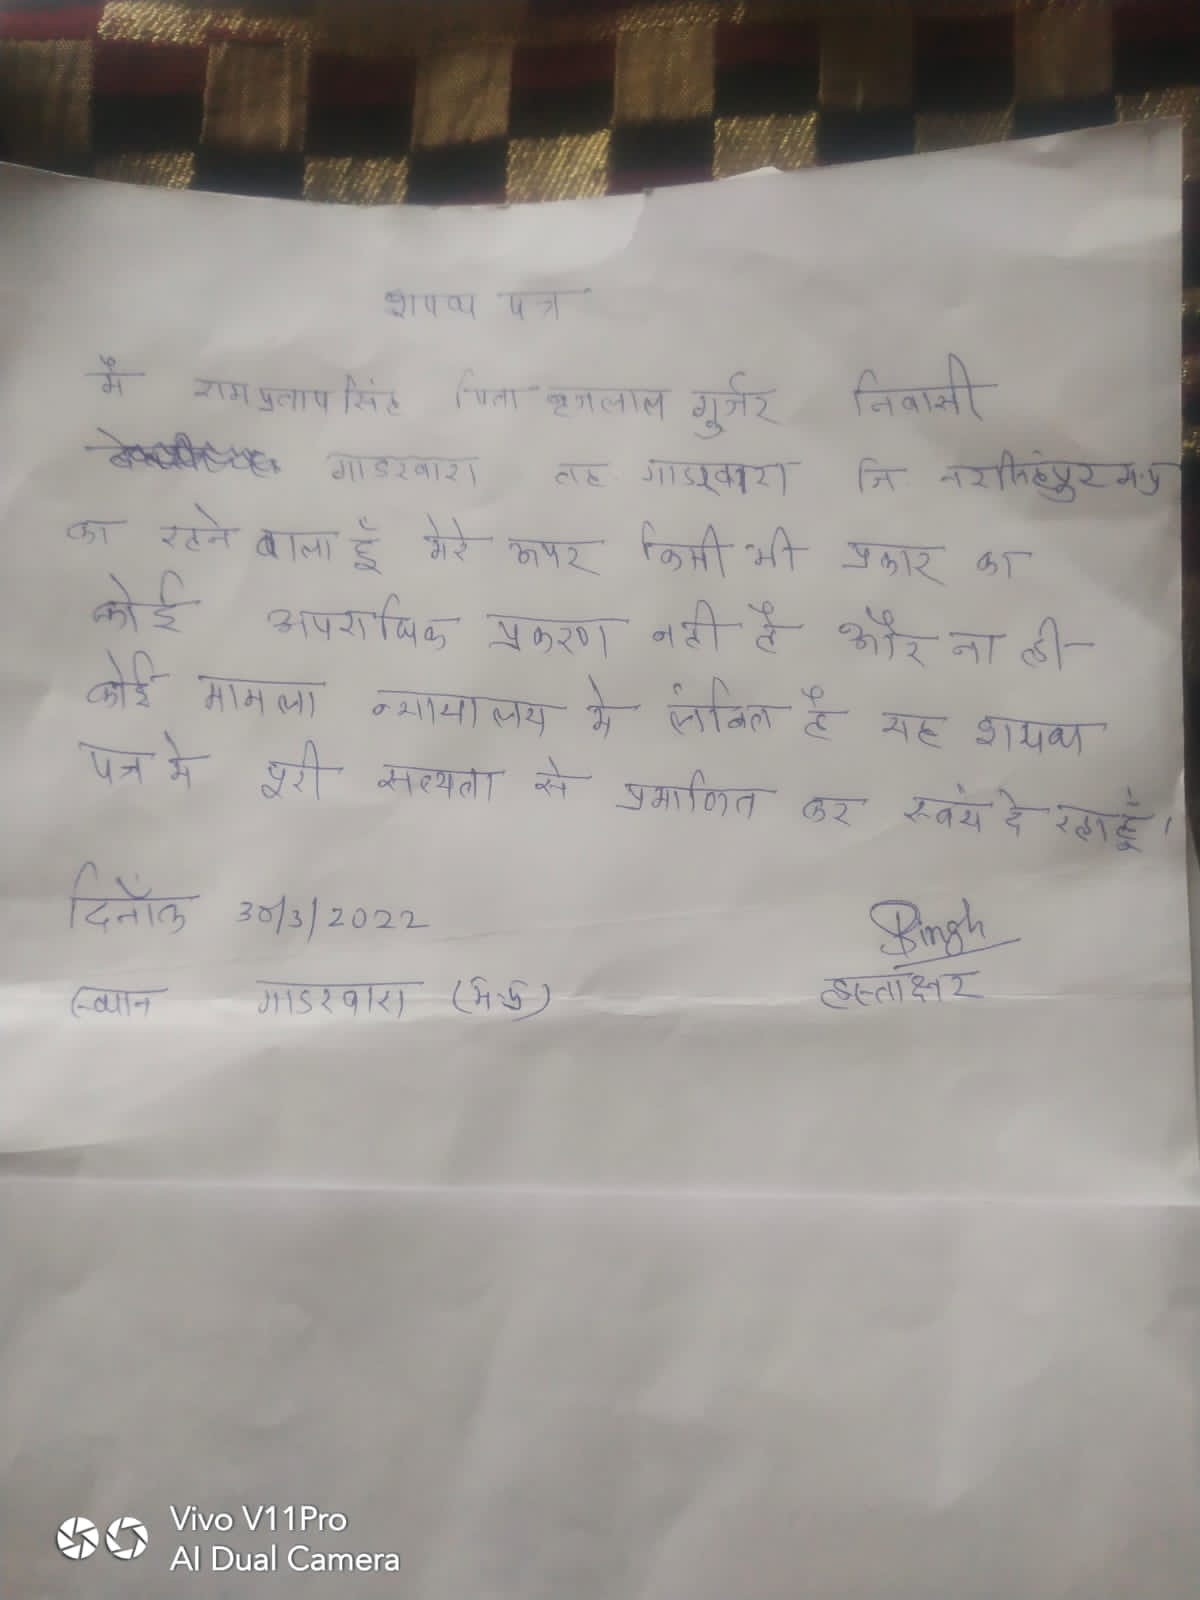 शपथ पत्र
मैं रामप्रताप सिंह पिता बृजलाल गुर्जर निवासी
गाडरवारा तह गाडरवारा जि. नरसिंहपुर म.प्र
का रहने वाला हूँ मेरे ऊपर किसी भी प्रकार का
कोई अपराधिक प्रकरण नही है और ना ही
कोई मामला न्यायालय मे लंबित है यह शपथ
पत्र मे पूरी सत्यता से प्रमाणित कर स्वंय दे रहा हूँ।
दिनाँक 30/3/2022
Singh
स्थान गाडरवारा (म.प्र)
हस्ताक्षर
Vivo V11Pro
AI Dual Camera